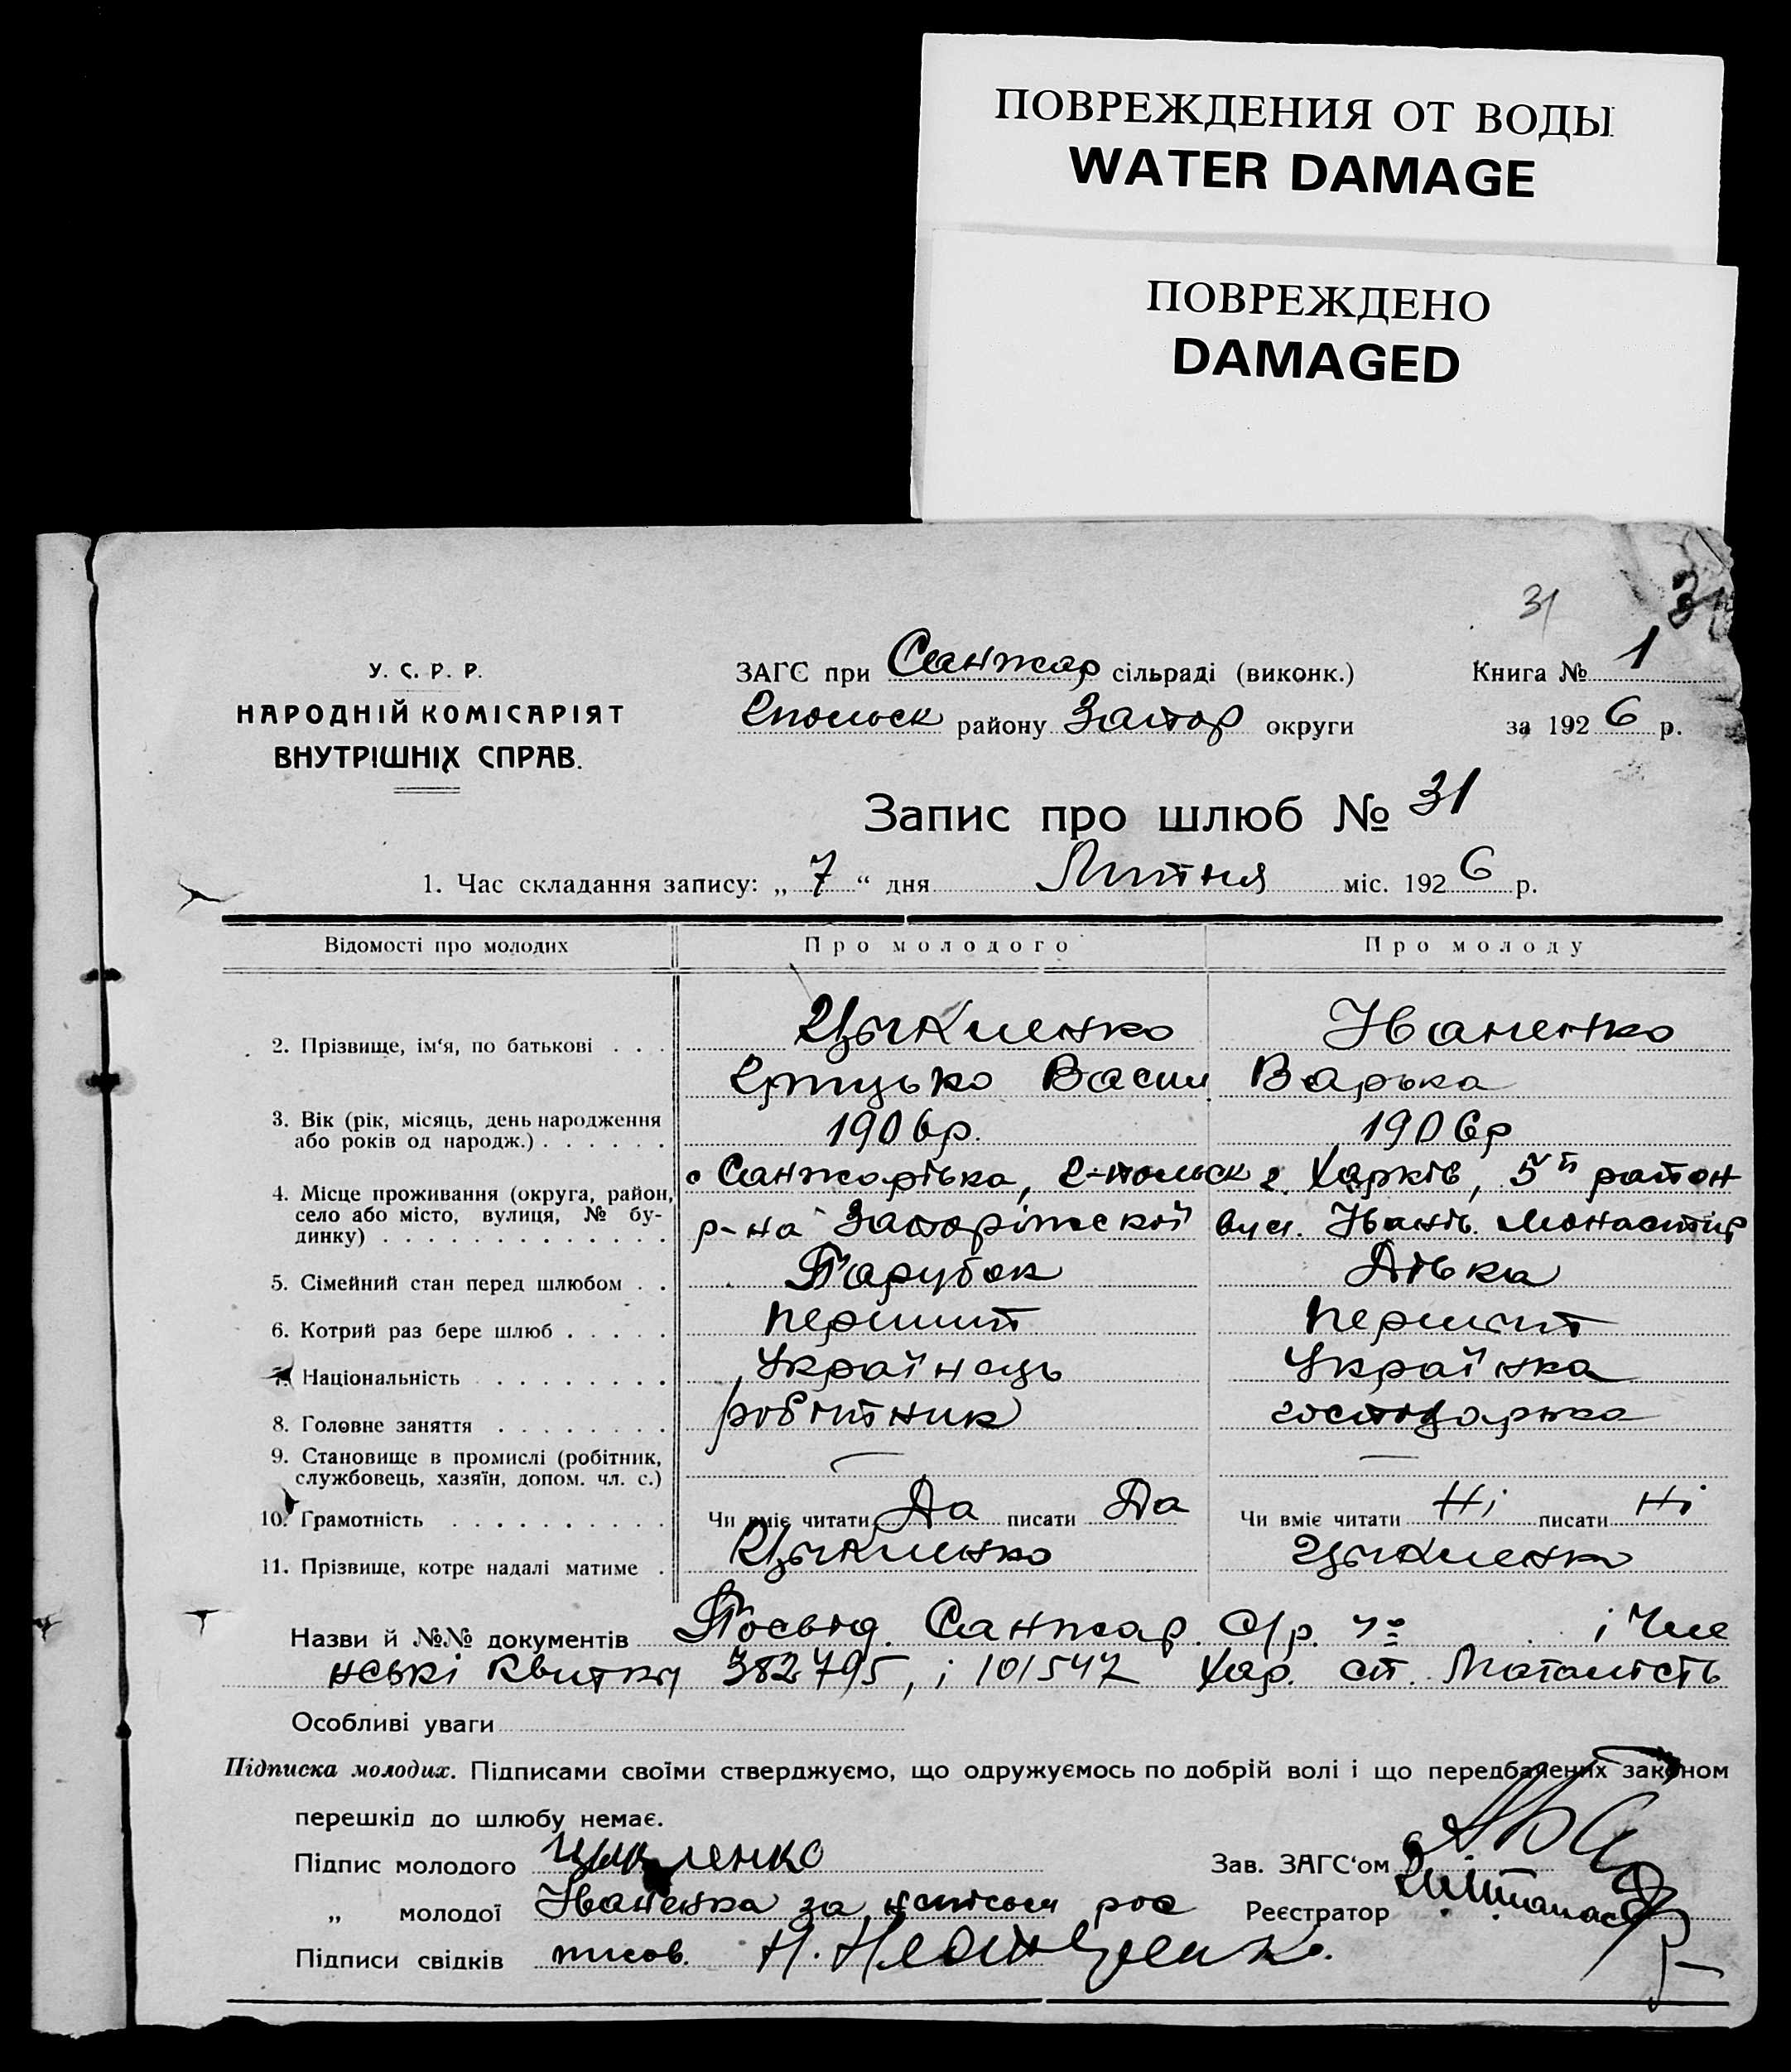 ПОВРЕЖДЕНИЯ ОТ ВОДЫ
WATER DAMAGE
ПОВРЕЖДЕНО
DAMAGED
31
31
У. С. Р. Р.
НАРОДНІЙ КОМІСАРІЯТ
ВНУТРІШНІХ СПРАВ.
ЗАГС при Санжар сільраді (виконк.)
Книга № 1
району Запор округи
за 1926 р.
Запис про шлюб № 31
1. Час складання запису: „ 7 “ дня міс. 1926 р.
Відомості про молодих
Про молодого
Про молоду
2. Прізвище, ім‘я, по батькові . . .
Іваненко
Грицько Васил
Варька
3. Вік (рік, місяць, день народження
або років од народж.) . . . . . .
1906р.
1906р
4. Місце проживання (округа, район,
село або місто, вулиця, № бу-
динку) . . . . . . . . . . . . .
с Санжарівка, Г-польск
г. Харків, 5й район
р-на Запоріжскої
вул. Іванів. Монастир
5. Сімейний стан перед шлюбом . .
Парубок
Дівка
6. Котрий раз бере шлюб . . . . .
перший
перший
7. Національність . . . . . . . .
Українець
Українка
8. Головне заняття . . . . . . . .
робітник
господарька
9. Становище в промислі (робітник,
службовець, хазяїн, допом. чл. с.)
—
—
10. Грамотність . . . . . . . . . .
Чи вміє читати Да писати Да
Чи вміє читати Ні писати Ні
11. Прізвище, котре надалі матиме .
Назви й №№ документів Посвід. Санжар. С/р. і Чле
нські квитки 382795, і 101547 Хар. ст.
Особливі уваги
Підписка молодих. Підписами своїми стверджуємо, що одружуємось по добрій волі і що передбачених законом
перешкід до шлюбу немає.
Підпис молодого
Зав. ЗАГС‘ом
„ молодої Іваненка за рос
Реєстратор
Підписи свідків писов.